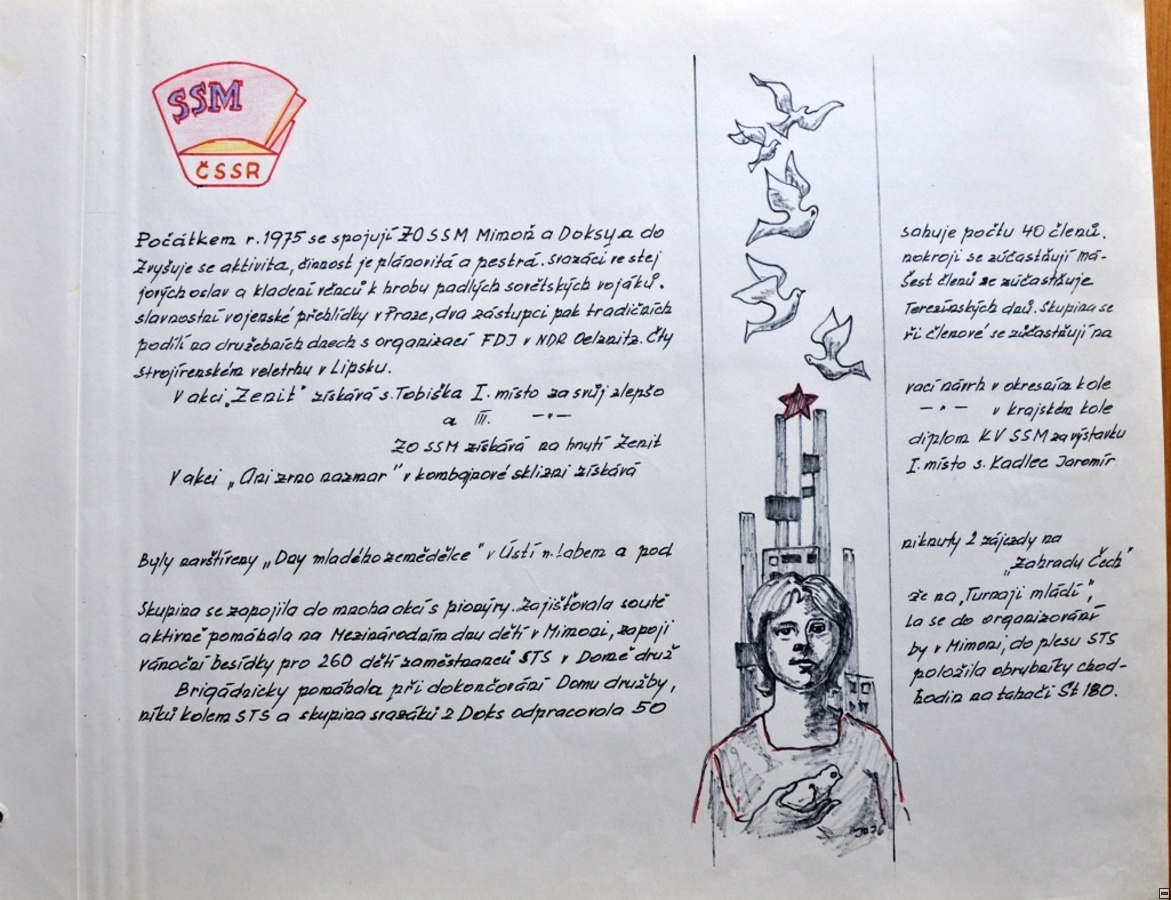 SSM
ČSSR
Počátkem r. 1975 se spojují ZO SSM Mimoň a Doksy a do sahuje počtu 40 členů.
Zvyšuje se aktivita, činnost je plánovitá a pestrá. Svazáci ve stej nokroji se zúčastňují má-
jových oslav a kladení věnců k hrobu padlých sovětských vojáků. Šest členů se zúčastňuje
slavnostní vojenské přehlídky v Praze, dva zástupci pak tradičních Terezínských dnů. Skupina se
podílí na družebních dnech s organizací FDJ v NDR Oelznitz. Čty ři členové se zúčastňují na
Strojírenském veletrhu v Lipsku.
V akci „Zenit" získává s. Tobiška I. místo za svůj zlepšo vací návrh v okresním kole
a III. —"— —"— v krajském kole
ZO SSM získává na hnutí Zenit diplom KV SSM za výstavku
V akci „Ani zrno nazmar" v kombajnové sklizni získává I. místo s. Kadlec Jaromír
Byly navštíveny „Dny mladého zemědělce" v Ústí n. Labem a pod niknuty 2 zájezdy na
„Zahradu Čech"
Skupina se zapojila do mnoha akcí s pionýry. Zajišťovala soutě že na „Turnaji mládí",
aktivně pomáhala na Mezinárodním dnu dětí v Mimoni, zapoji la se do organizování
vánoční besídky pro 260 dětí zaměstnanců STS v Domě druž by v Mimoni, do plesu STS
Brigádnicky pomáhala při dokončování Domu družby, položila obrubníky chod-
níků kolem STS a skupina svazáků z Doks odpracovala 50 hodin na tahači Št 180.